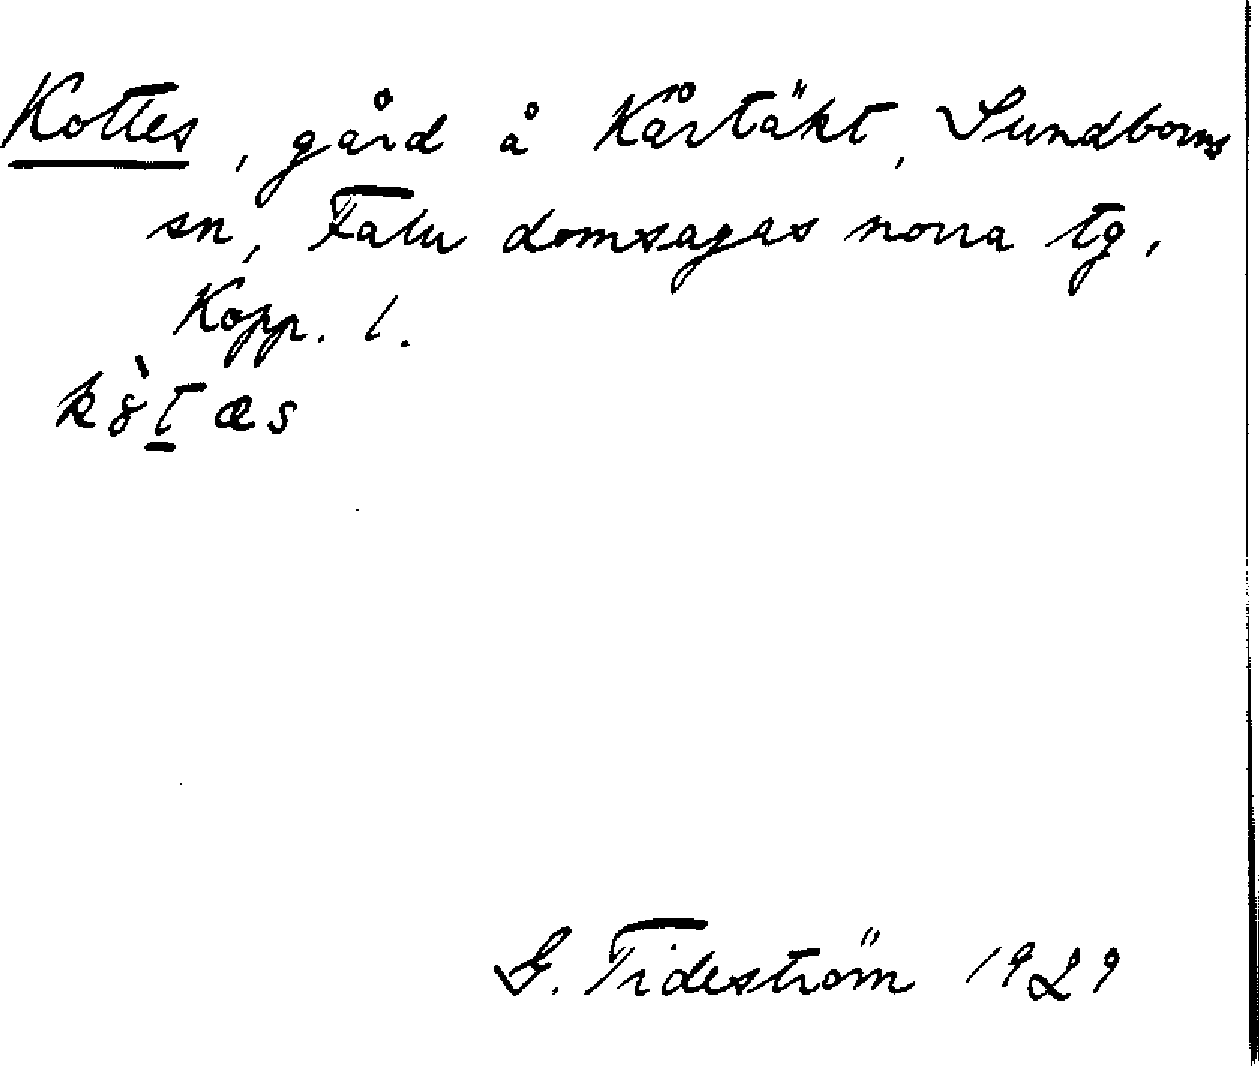 Kottes, gård å Kårtäkt, Sundborns
sn, Falu domsagas norra tg,
Kopp. l.
G. Tideström 1929